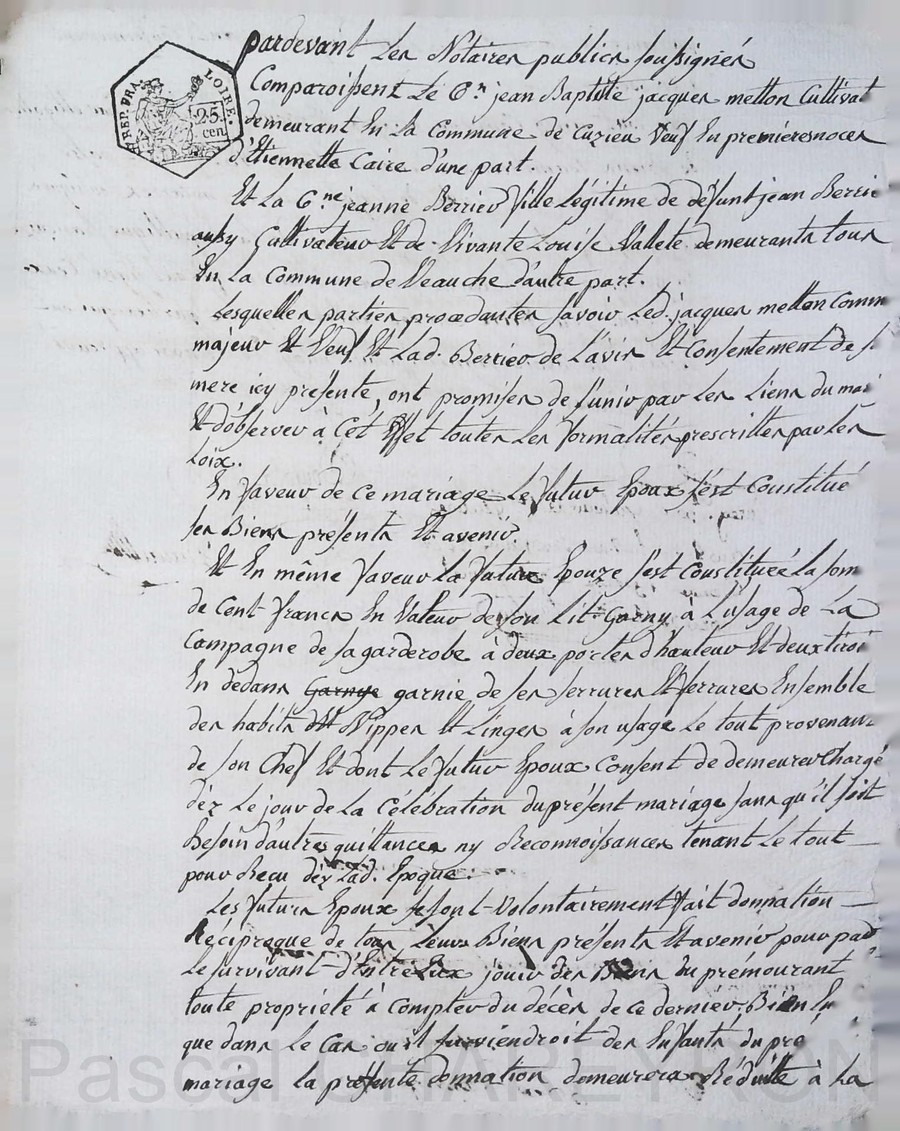 pardevant Les Notaires publics soussignés
REP. FRA.
LOIRE.
25.
cen.
Comparoissent Le C.n jean Baptiste jacques metton Cultivat
demeurant En La Commune de Cuzieu Veuf En premieres noces
d'Etiennette Caire d'une part.
Et La C.ne jeanne Berrier fille Légitime de défunt jean Berri
Cultivateur Et de Vivante Louise Valete demeurants tous
En La Commune de Veauche d'autre part.
Lesquelles parties procedantes savoir Led. jacques metton Comm
majeur Et Veuf Et Lad. Berrier de L'avis Et Consentement de s
mere icy présente, ont promises de s'unir par Les Liens du mari
Et d'observer à Cet Effet toutes Les formalités prescrittes par Les
Loix.
En faveur de ce mariage Le futur Epoux s'est Constitué
ses Biens présents Et avenir.
Et En même faveur La future Epouze s'est Constituée La som
de Cent francs En Valeur de son Lit Garny à L'usage de La
Campagne de sa garderobe à deux portes d'hauteur Et deux tiroi
En dedans Garnye garnie de ses serrures Et ferrures Ensemble
des habits Et Nippes Et Linges à son usage Le tout provenant
de son Chef Et dont Le futur Epoux Consent de demeurer Chargé
déz Le jour de La Célébration du présent mariage sans qu'il soit
Besoin d'autres quittances ny Reconnoissances tenant Le tout
pour Recu déz Lad. Epoque.
Les futurs Epoux se sont Volontairement fait donnation
Réciproque de tous Leurs Biens présents Et avenir pour par
Le survivant d'Entre Eux jouir des Biens du prémourant
toute propriété à Compter du décès de ce dernier. Bien En
que dans Le Cas ou il surviendroit des Enfants du pré
mariage La présente donnation demeurera Réduitte à La
Pascal CHAREYRON